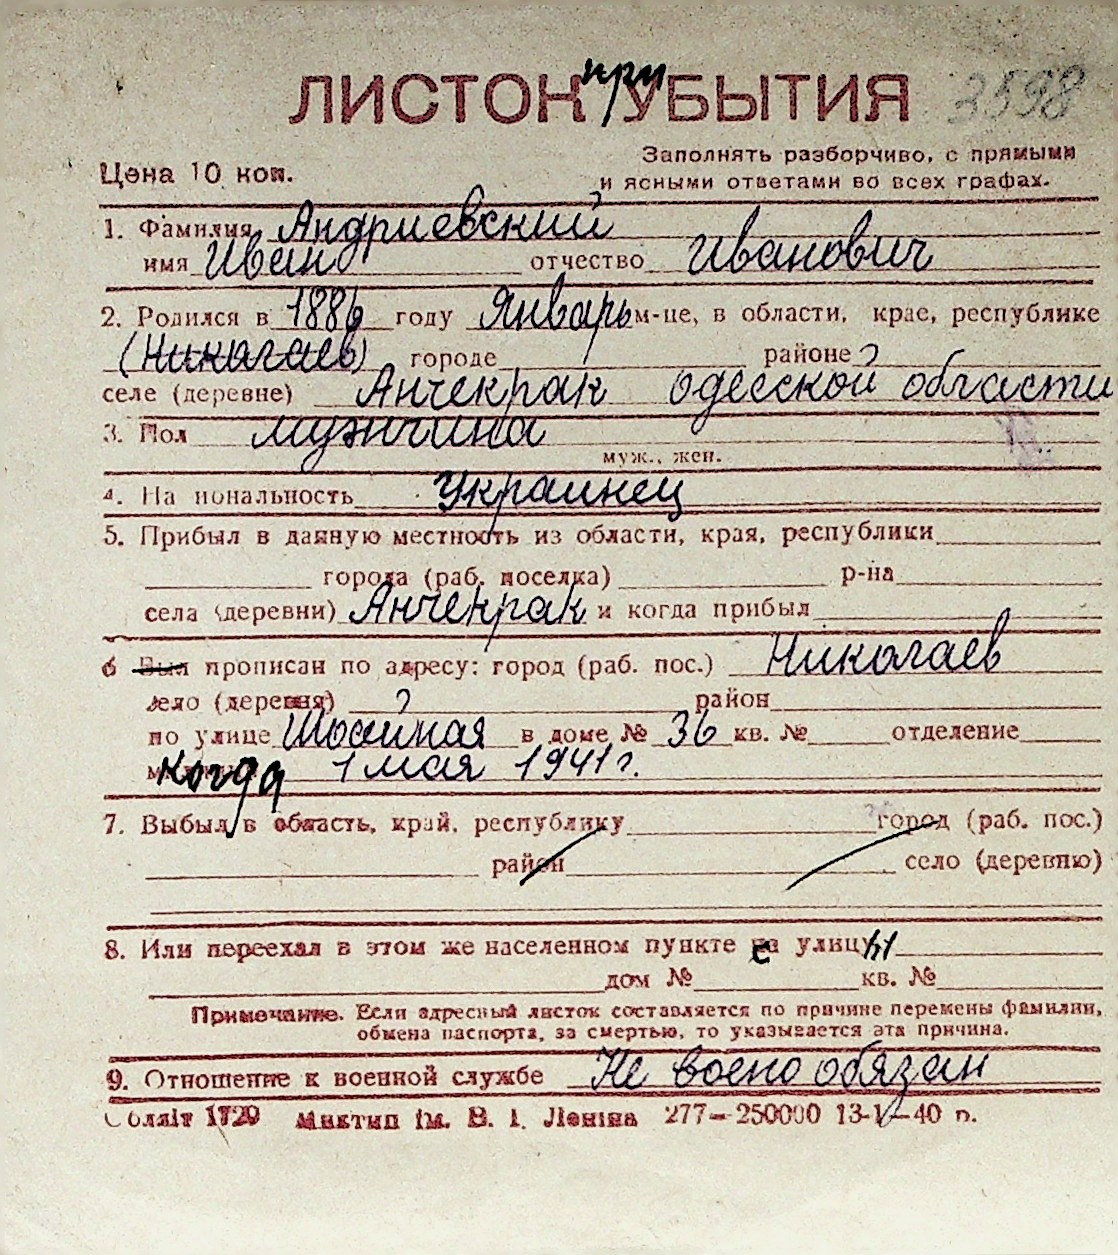 ЛИСТОК при УБЫТИЯ 3598
Цена 10 коп.
Заполнять разборчиво, с прямыми
и ясными ответами во всех графах.
1. Фамилия Андриевский
имя Иван отчество Иванович
2. Родился в 1886 году Январь м-це, в области, крае, республике
(Николаев) городе районе
селе (деревне) Анчекрак одесской области
3. Пол мужчина
муж., жен.
4. Национальность украинец
5. Прибыл в данную местность из области, края, республики
города (раб. поселка) р-на
села (деревни) Анчекрак и когда прибыл
6 Был прописан по адресу: город (раб. пос.) Николаев
село (деревня) район
по улице в доме № 36 кв. № отделение
когда 1 мая 1941 г.
7. Выбыл в область, край, республику город (раб. пос.)
район село (деревню)
8. Или переехал в этом же населенном пункте с улицы
дом № кв. №
Примечание. Если адресный листок составляется по причине перемены фамилии,
обмена паспорта, за смертью, то указывается эта причина.
9. Отношение к военной службе Не воено обязан
Обліт 1720 Миктип ім. В. І. Леніна 277—250000 13-V—40 р.